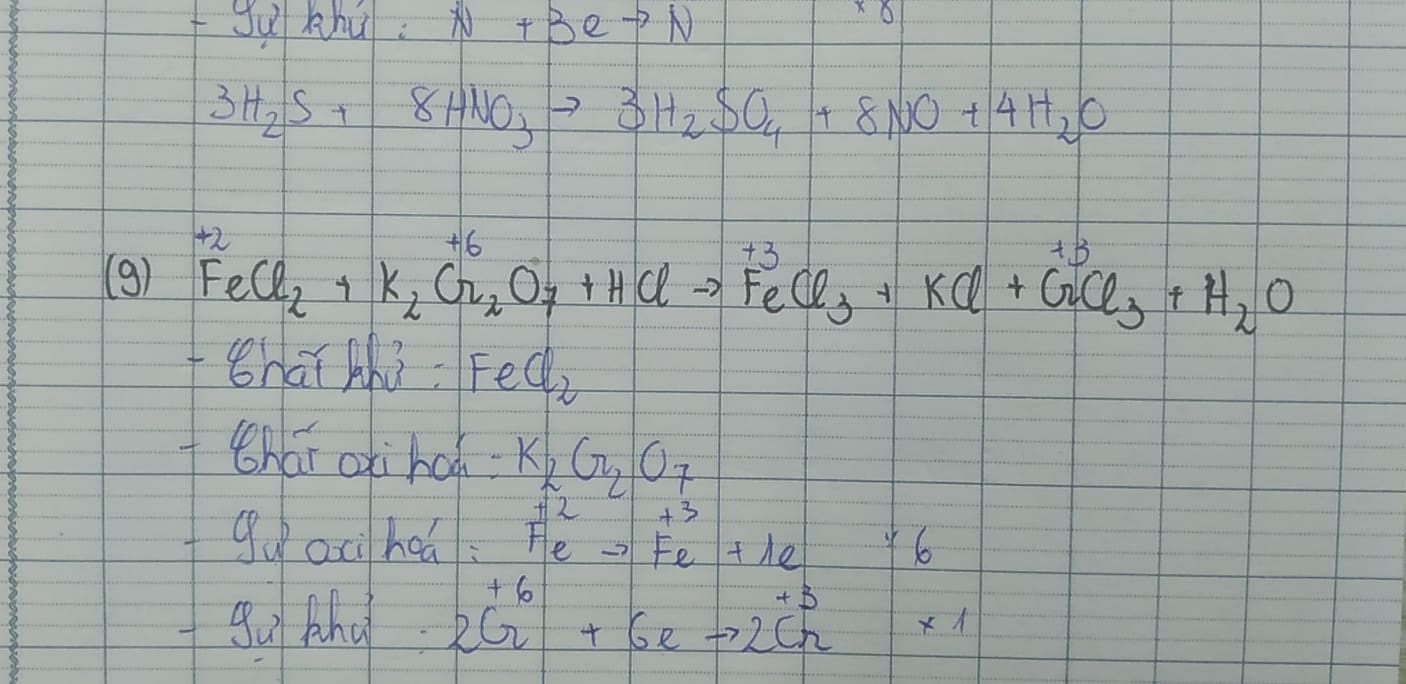 - Sự khử : N + 3e → N × 8
3H₂S + 8HNO₃ → 3H₂SO₄ + 8NO + 4H₂O
(9) +2 +6 +3 +3
FeCl₂ + K₂Cr₂O₇ + HCl → FeCl₃ + KCl + CrCl₃ + H₂O
- Chất khử : FeCl₂
- Chất oxi hoá : K₂Cr₂O₇
+2 +3
- Sự oxi hoá : Fe → Fe + 1e × 6
+6 +3
- Sự khử : 2Cr + 6e → 2Cr × 1